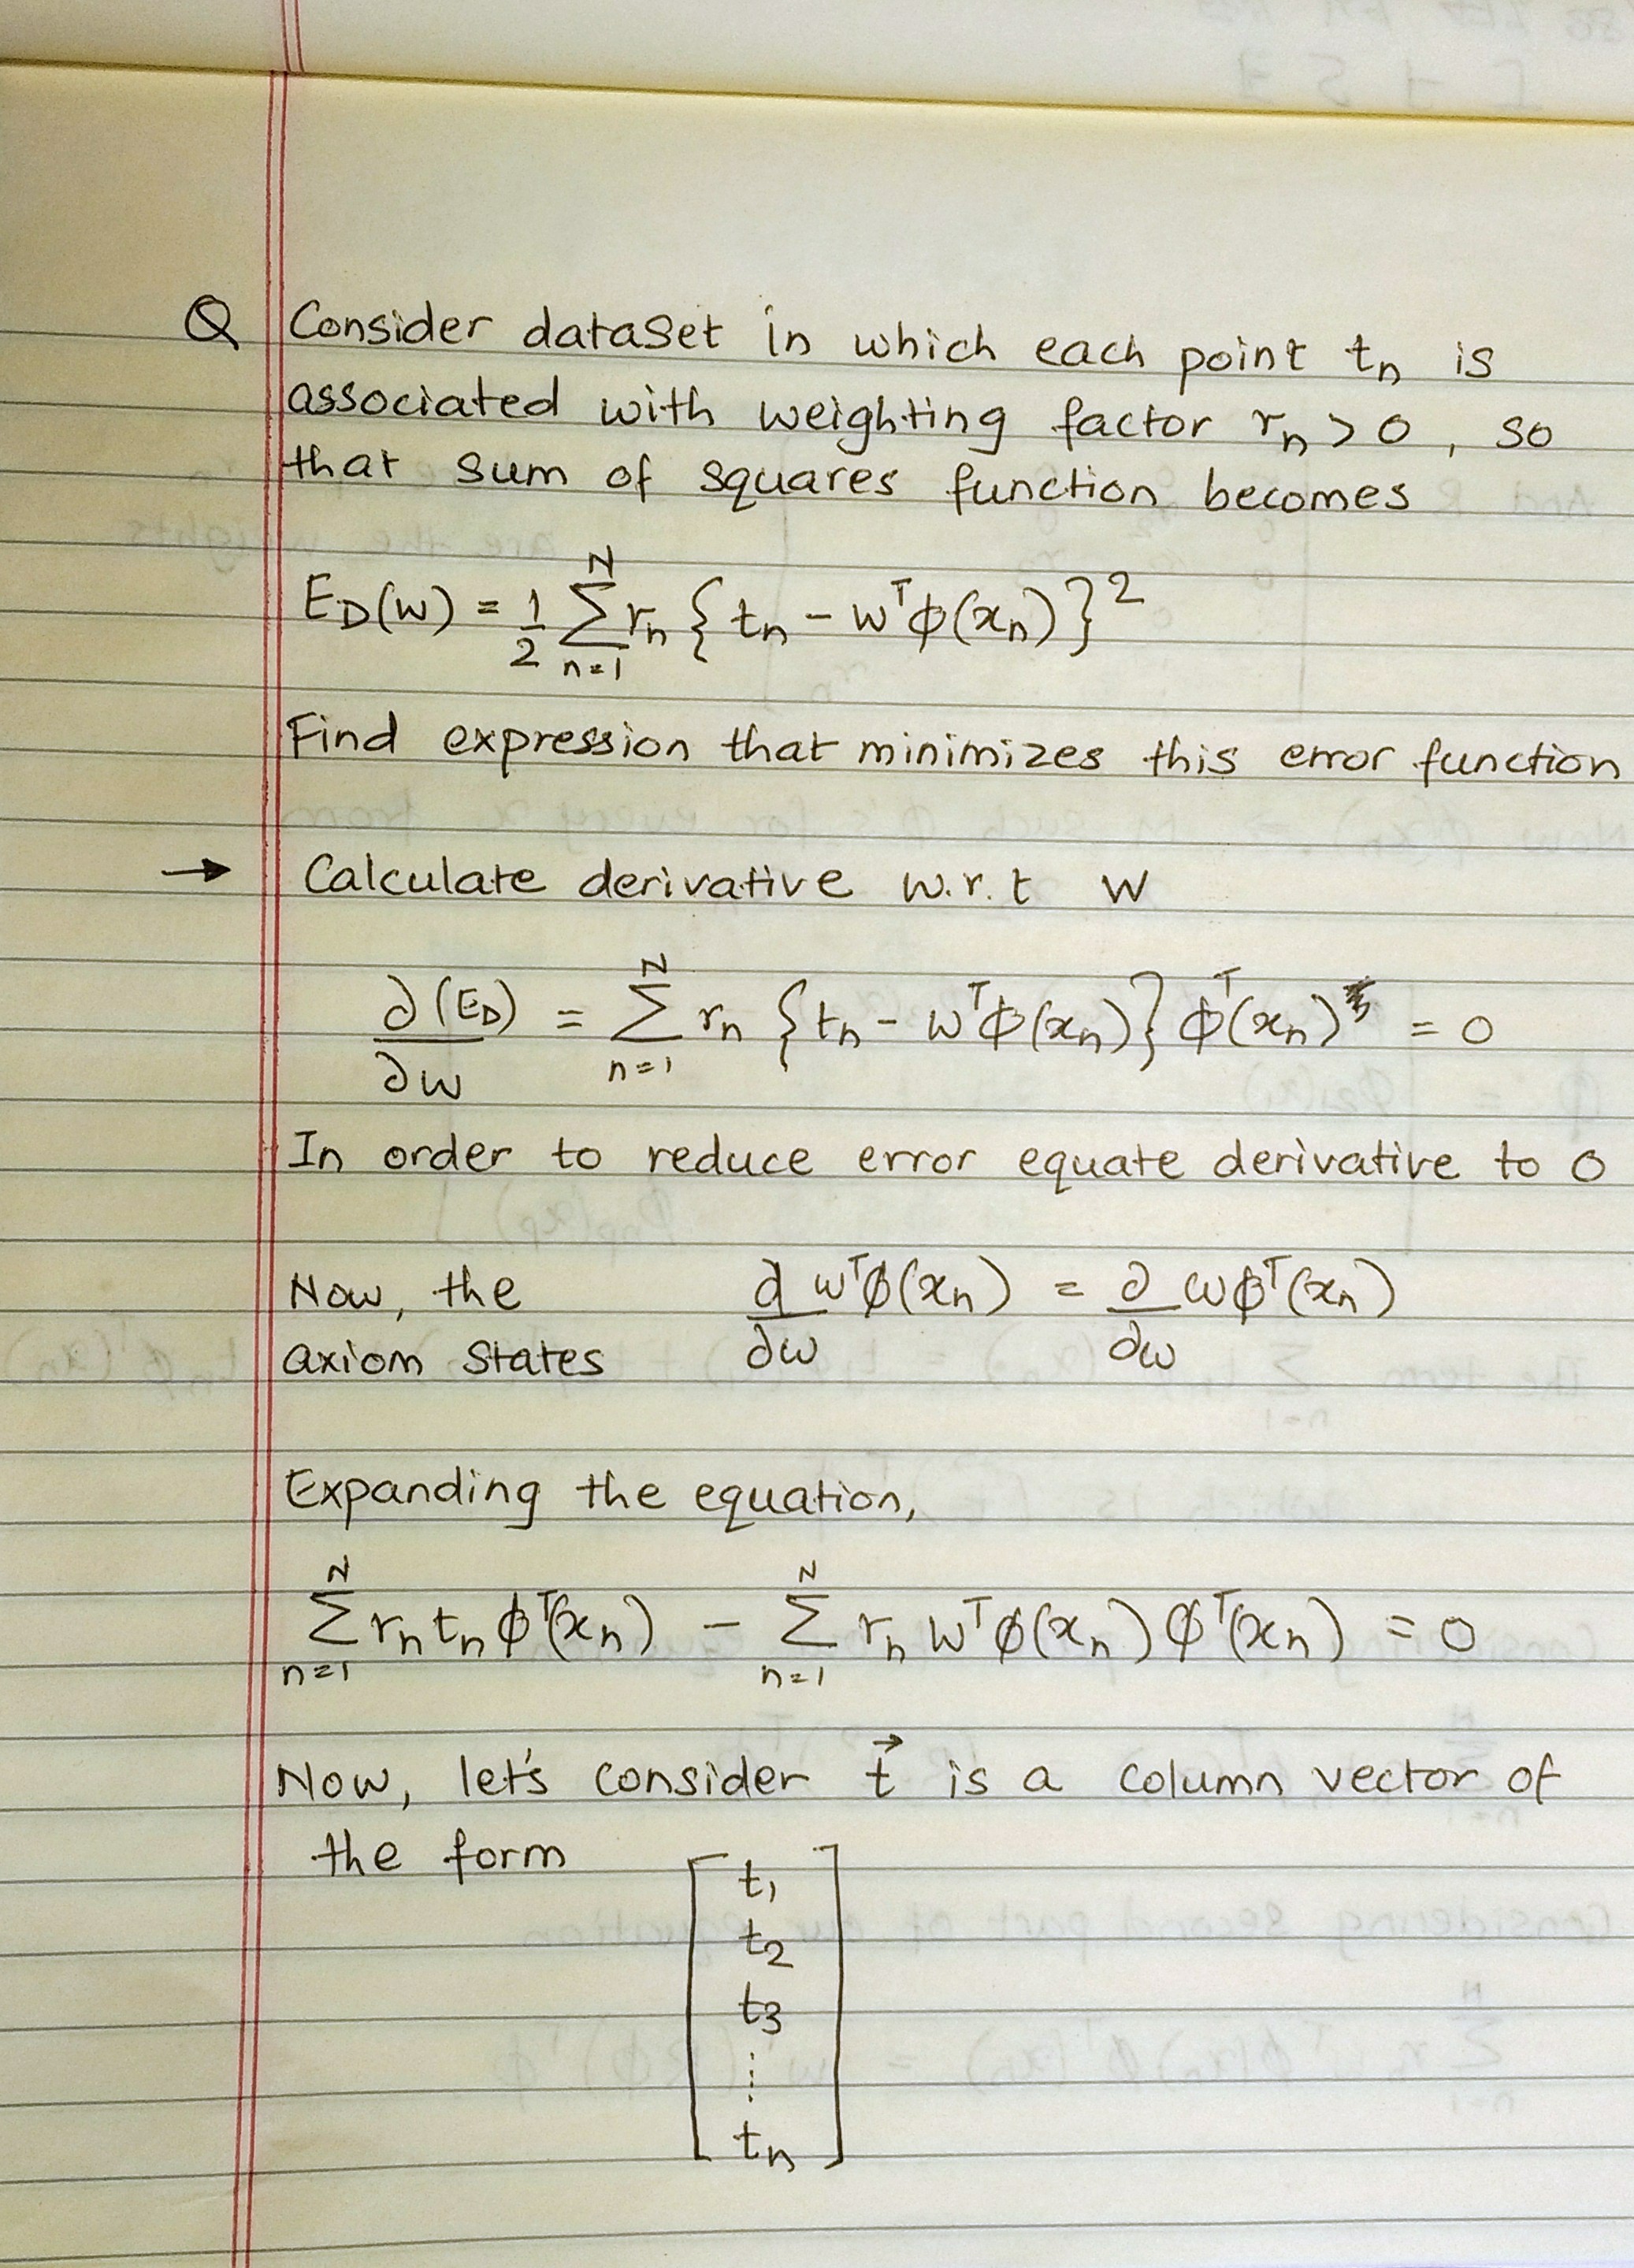 Q Consider dataset in which each point tn is
associated with weighting factor rn > 0, so
that sum of squares function becomes
ED(w) = 1/2 Σ_{n=1}^{N} rn { tn - wᵀφ(xn) }²
Find expression that minimizes this error function
→ Calculate derivative w.r.t w
∂(ED)/∂w = Σ_{n=1}^{N} rn { tn - wᵀφ(xn) } φᵀ(xn) = 0
In order to reduce error equate derivative to 0
Now, the axiom states ∂/∂w wᵀφ(xn) = ∂/∂w wφᵀ(xn)
Expanding the equation,
Σ_{n=1}^{N} rn tn φᵀ(xn) - Σ_{n=1}^{N} rn wᵀφ(xn) φᵀ(xn) = 0
Now, let's consider t⃗ is a column vector of
the form
t1
t2
t3
⋮
tn